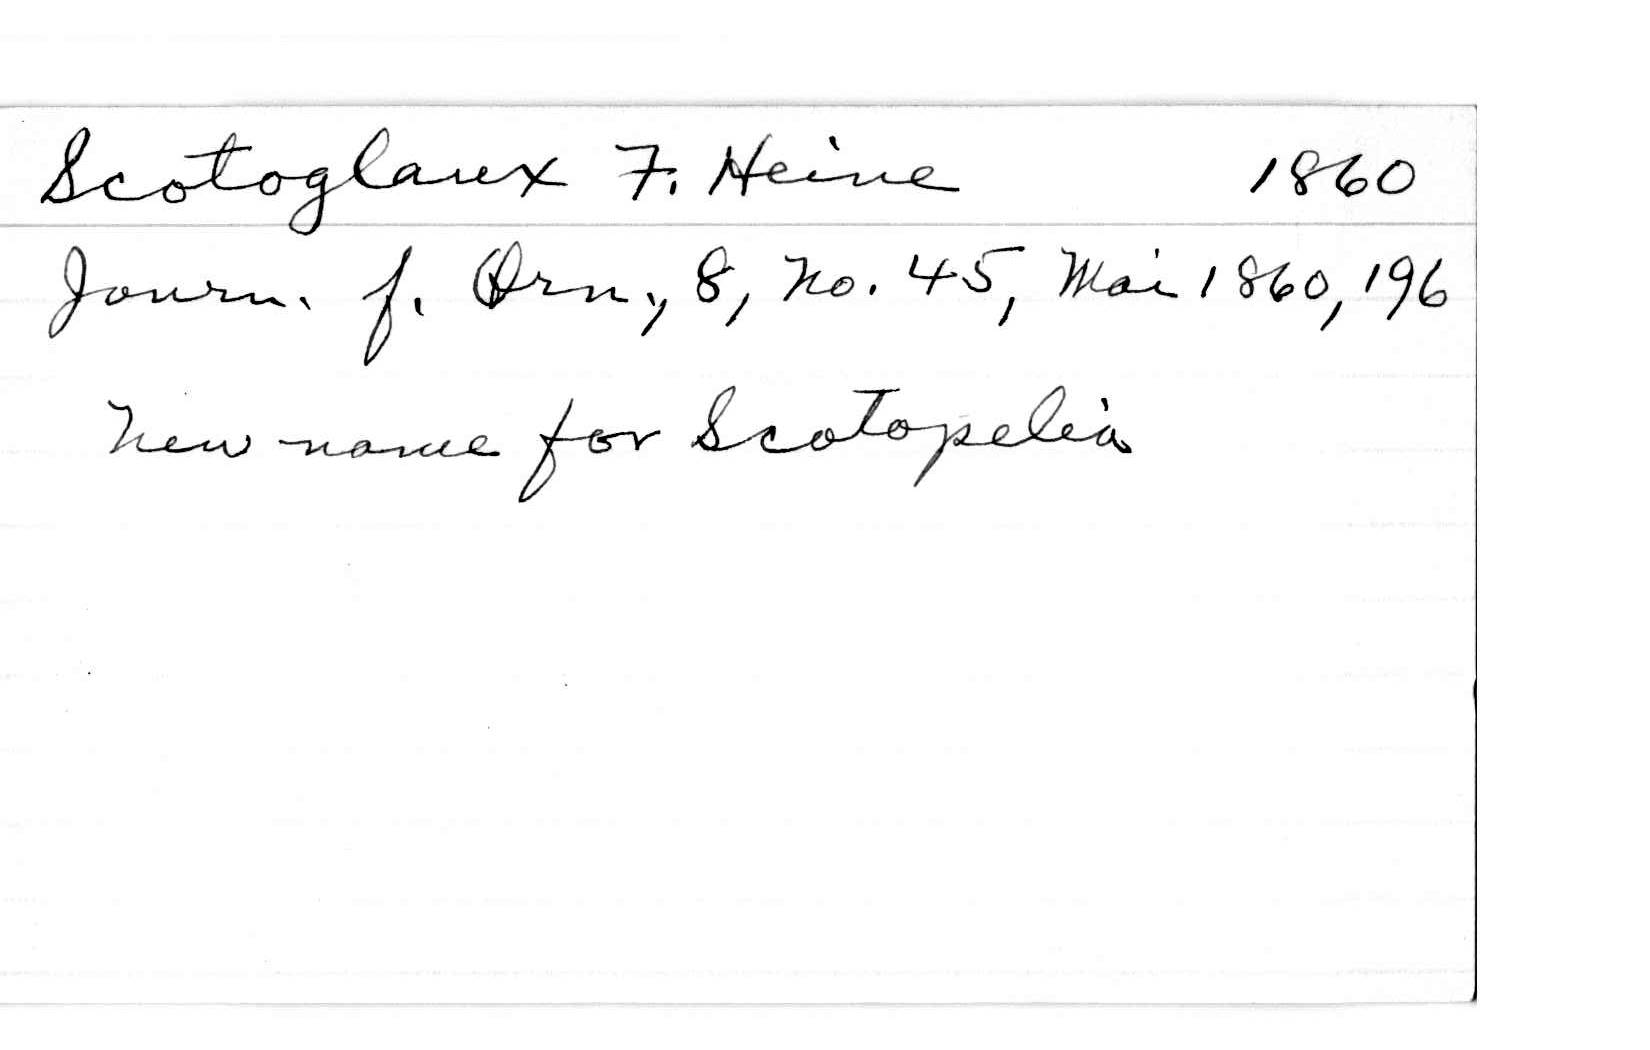 Scotoglaux F. Heine 1860
Journ. f. Orn., 8, no. 45, Mai 1860, 196
New name for Scotopelia